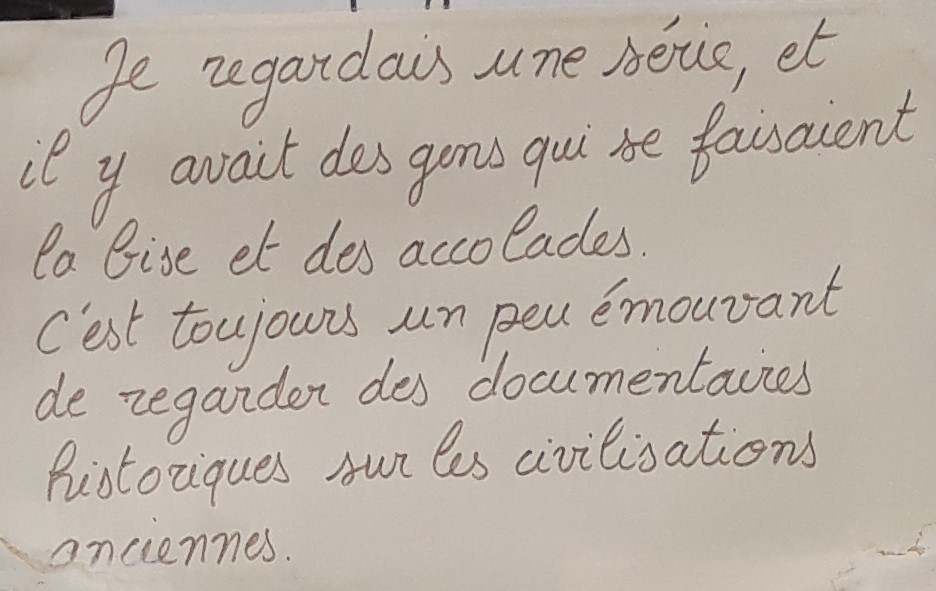 Je regardais une série, et
il y avait des gens qui se faisaient
la bise et des accolades.
C'est toujours un peu émouvant
de regarder des documentaires
historiques sur les civilisations
anciennes.